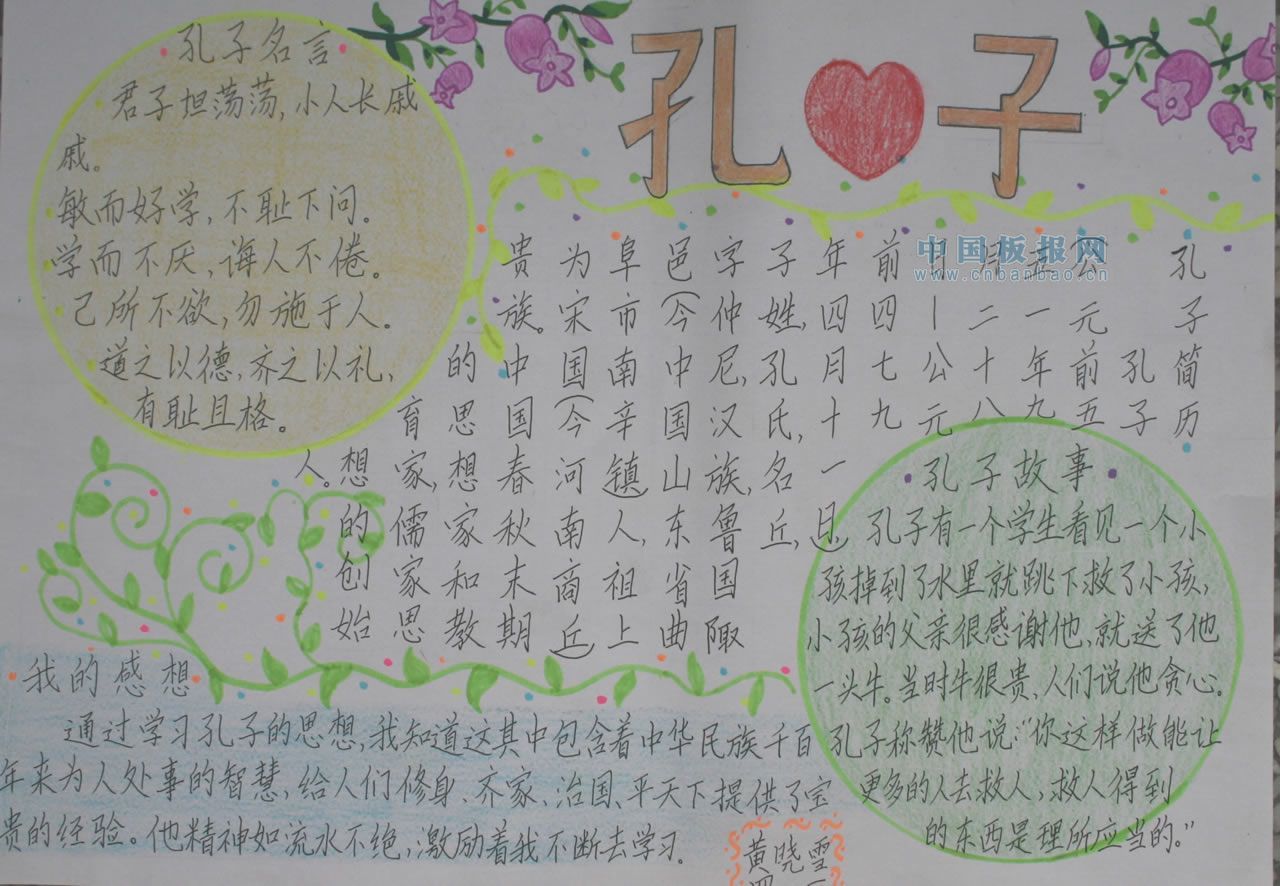 孔子
中国板报网
www.cnbanbao.cn
孔子名言
君子坦荡荡,小人长戚
戚。
敏而好学,不耻下问。
学而不厌,诲人不倦。
己所不欲,勿施于人。
道之以德,齐之以礼,
有耻且格。
孔子简历
孔子
公元前五
五一年九
月二十八
日—公元
前四七九
年四月十一日,
子姓,孔氏,名丘,
字仲尼,汉族,鲁国陬
邑(今中国山东省曲
阜市南辛镇)人,祖上
为宋国(今河南商丘)
贵族。中国春秋末期
的思想家和教
育家,儒家思
想的创始
人。
孔子故事
孔子有一个学生看见一个小
孩掉到了水里就跳下救了小孩,
小孩的父亲很感谢他,就送了他
一头牛。当时牛很贵、人们说他贪心。
孔子称赞他说:“你这样做能让
更多的人去救人,救人得到
的东西是理所应当的。”
我的感想
通过学习孔子的思想,我知道这其中包含着中华民族千百
年来为人处事的智慧,给人们修身、齐家、治国、平天下提供了宝
贵的经验。他精神如流水不绝,激励着我不断去学习.
黄晓雪